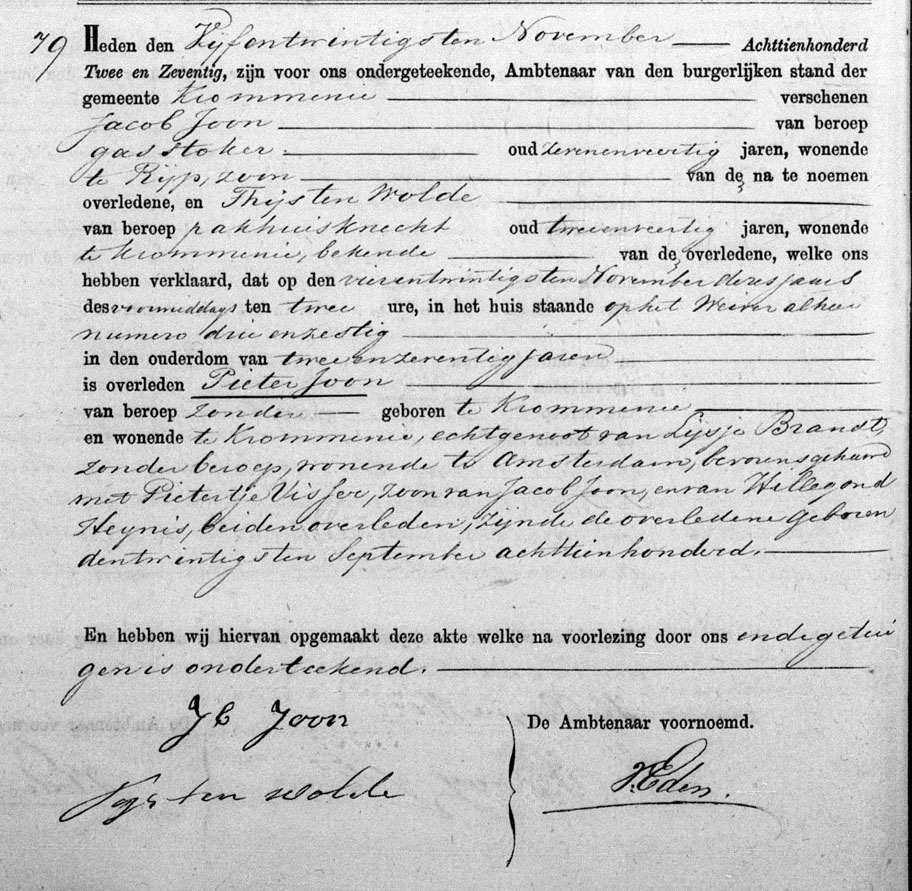 79 Heden den Vijfentwintigsten November Achttienhonderd
Twee en Zeventig, zijn voor ons ondergeteekende, Ambtenaar van den burgerlijken stand der
gemeente Krommenie verschenen
Jacob Joon van beroep
gasstoker oud zevenenveertig jaren, wonende
te Rijp, zoon van de na te noemen
overledene, en Thijs ten Wolde
van beroep pakhuisknecht oud tweeenveertig jaren, wonende
te Krommenie, bekende van de overledene, welke ons
hebben verklaard, dat op den vierentwintigsten November dezes jaars
des voormiddags ten twee ure, in het huis staande op het Weiver alhier
numero drie en zestig
in den ouderdom van twee en zeventig jaren
is overleden Pieter Joon
van beroep zonder geboren te Krommenie
en wonende te Krommenie, echtgenoot van Lijsje Brandt,
zonder beroep, wonende te Amsterdam, bevorens gehuwd
met Pietertje Visser, zoon van Jacob Joon, en van Hillegond
Heynis, beiden overleden, zijnde de overledene geboren
den twintigsten September achttienhonderd.
En hebben wij hiervan opgemaakt deze akte welke na voorlezing door ons en de getui
gen is onderteekend.
JC Joon De Ambtenaar voornoemd.
Tys ten wolde Eden.